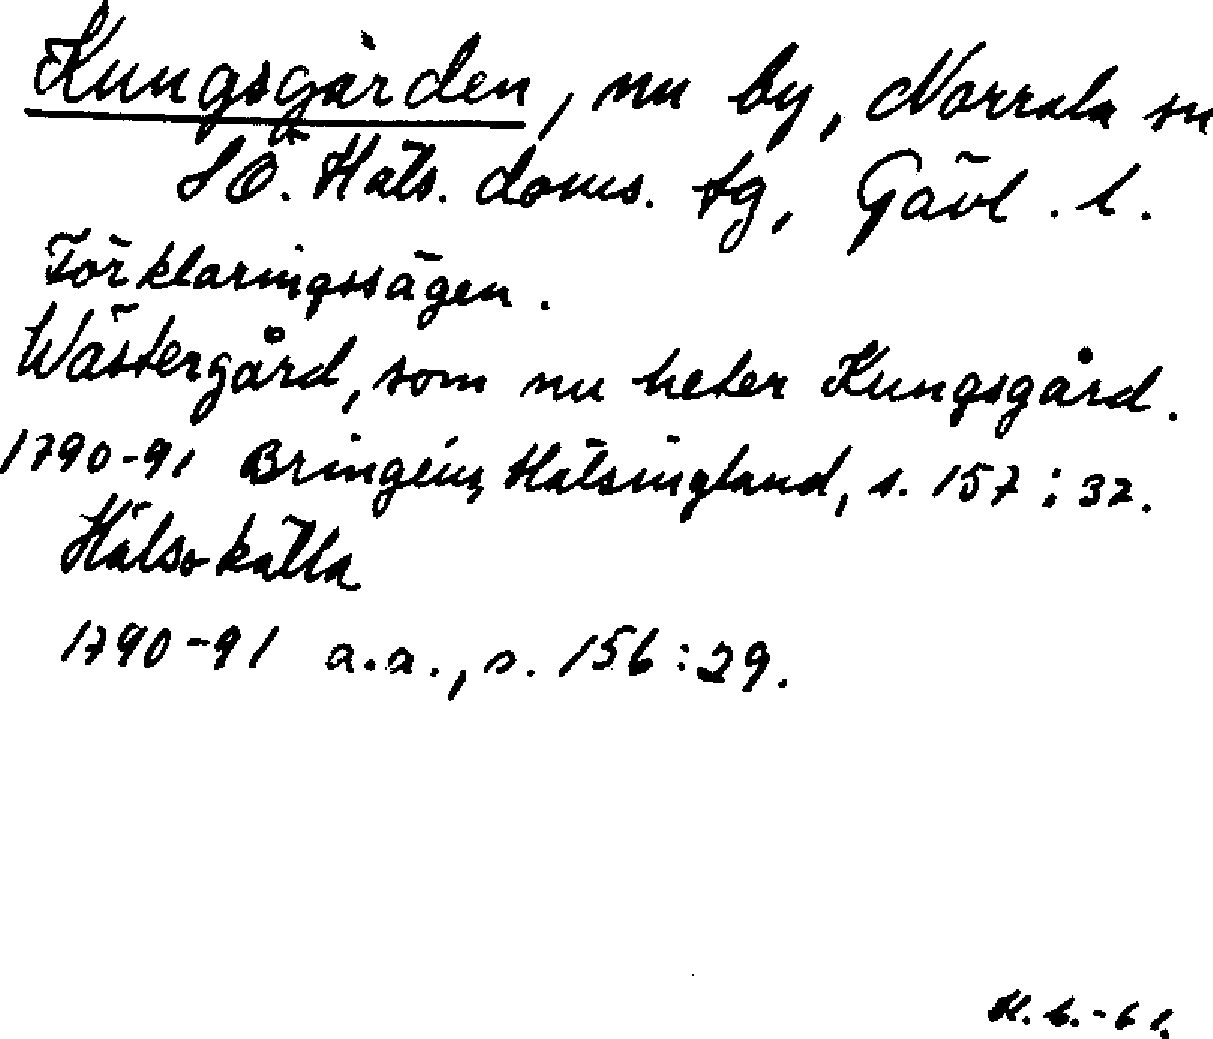 Kungsgården, nu by, Norrala sn
SÖ. Häls. doms. tg, Gävl. l.
Förklaringssägen.
Wästergård, som nu heter Kungsgård.
1790-91 Bringéus, Hälsingland, s. 157:32.
Hälsokälla
1790-91 a.a., s. 156:29.